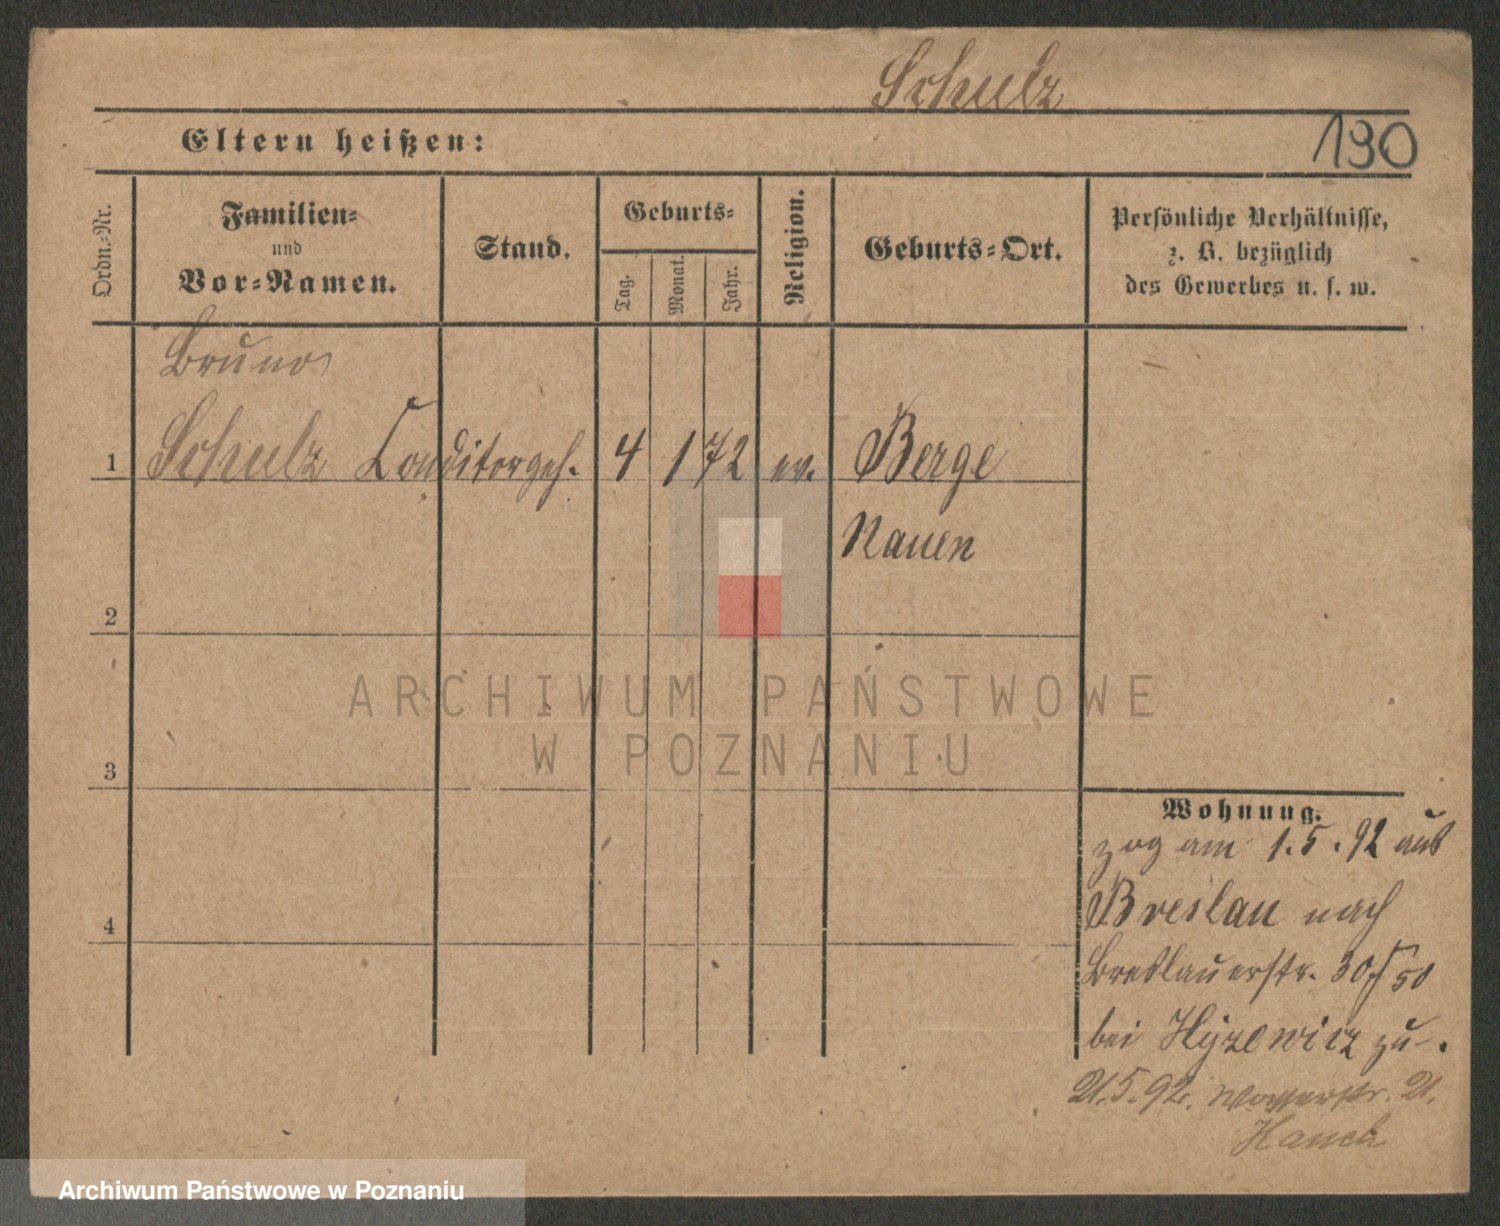 Schulz
Eltern heißen:
190
Ordn.-Nr.
Familien-
und
Vor-Namen.
Stand.
Geburts-
Tag.
Monat.
Jahr.
Religion.
Geburts-Ort.
Persönliche Verhältnisse,
z. B. bezüglich
des Gewerbes u. s. w.
Bruno
1 Schulz Conditorgeh. 4 1 72 ev. Berge
Nauen
2
ARCHIWUM PAŃSTWOWE
W POZNANIU
3
Wohnung.
zog am 1.5.92 aus
Breslau nach
4
Breslauerstr. 30
bei Hyzewicz zu.
21.5.92. 21.
Archiwum Państwowe w Poznaniu